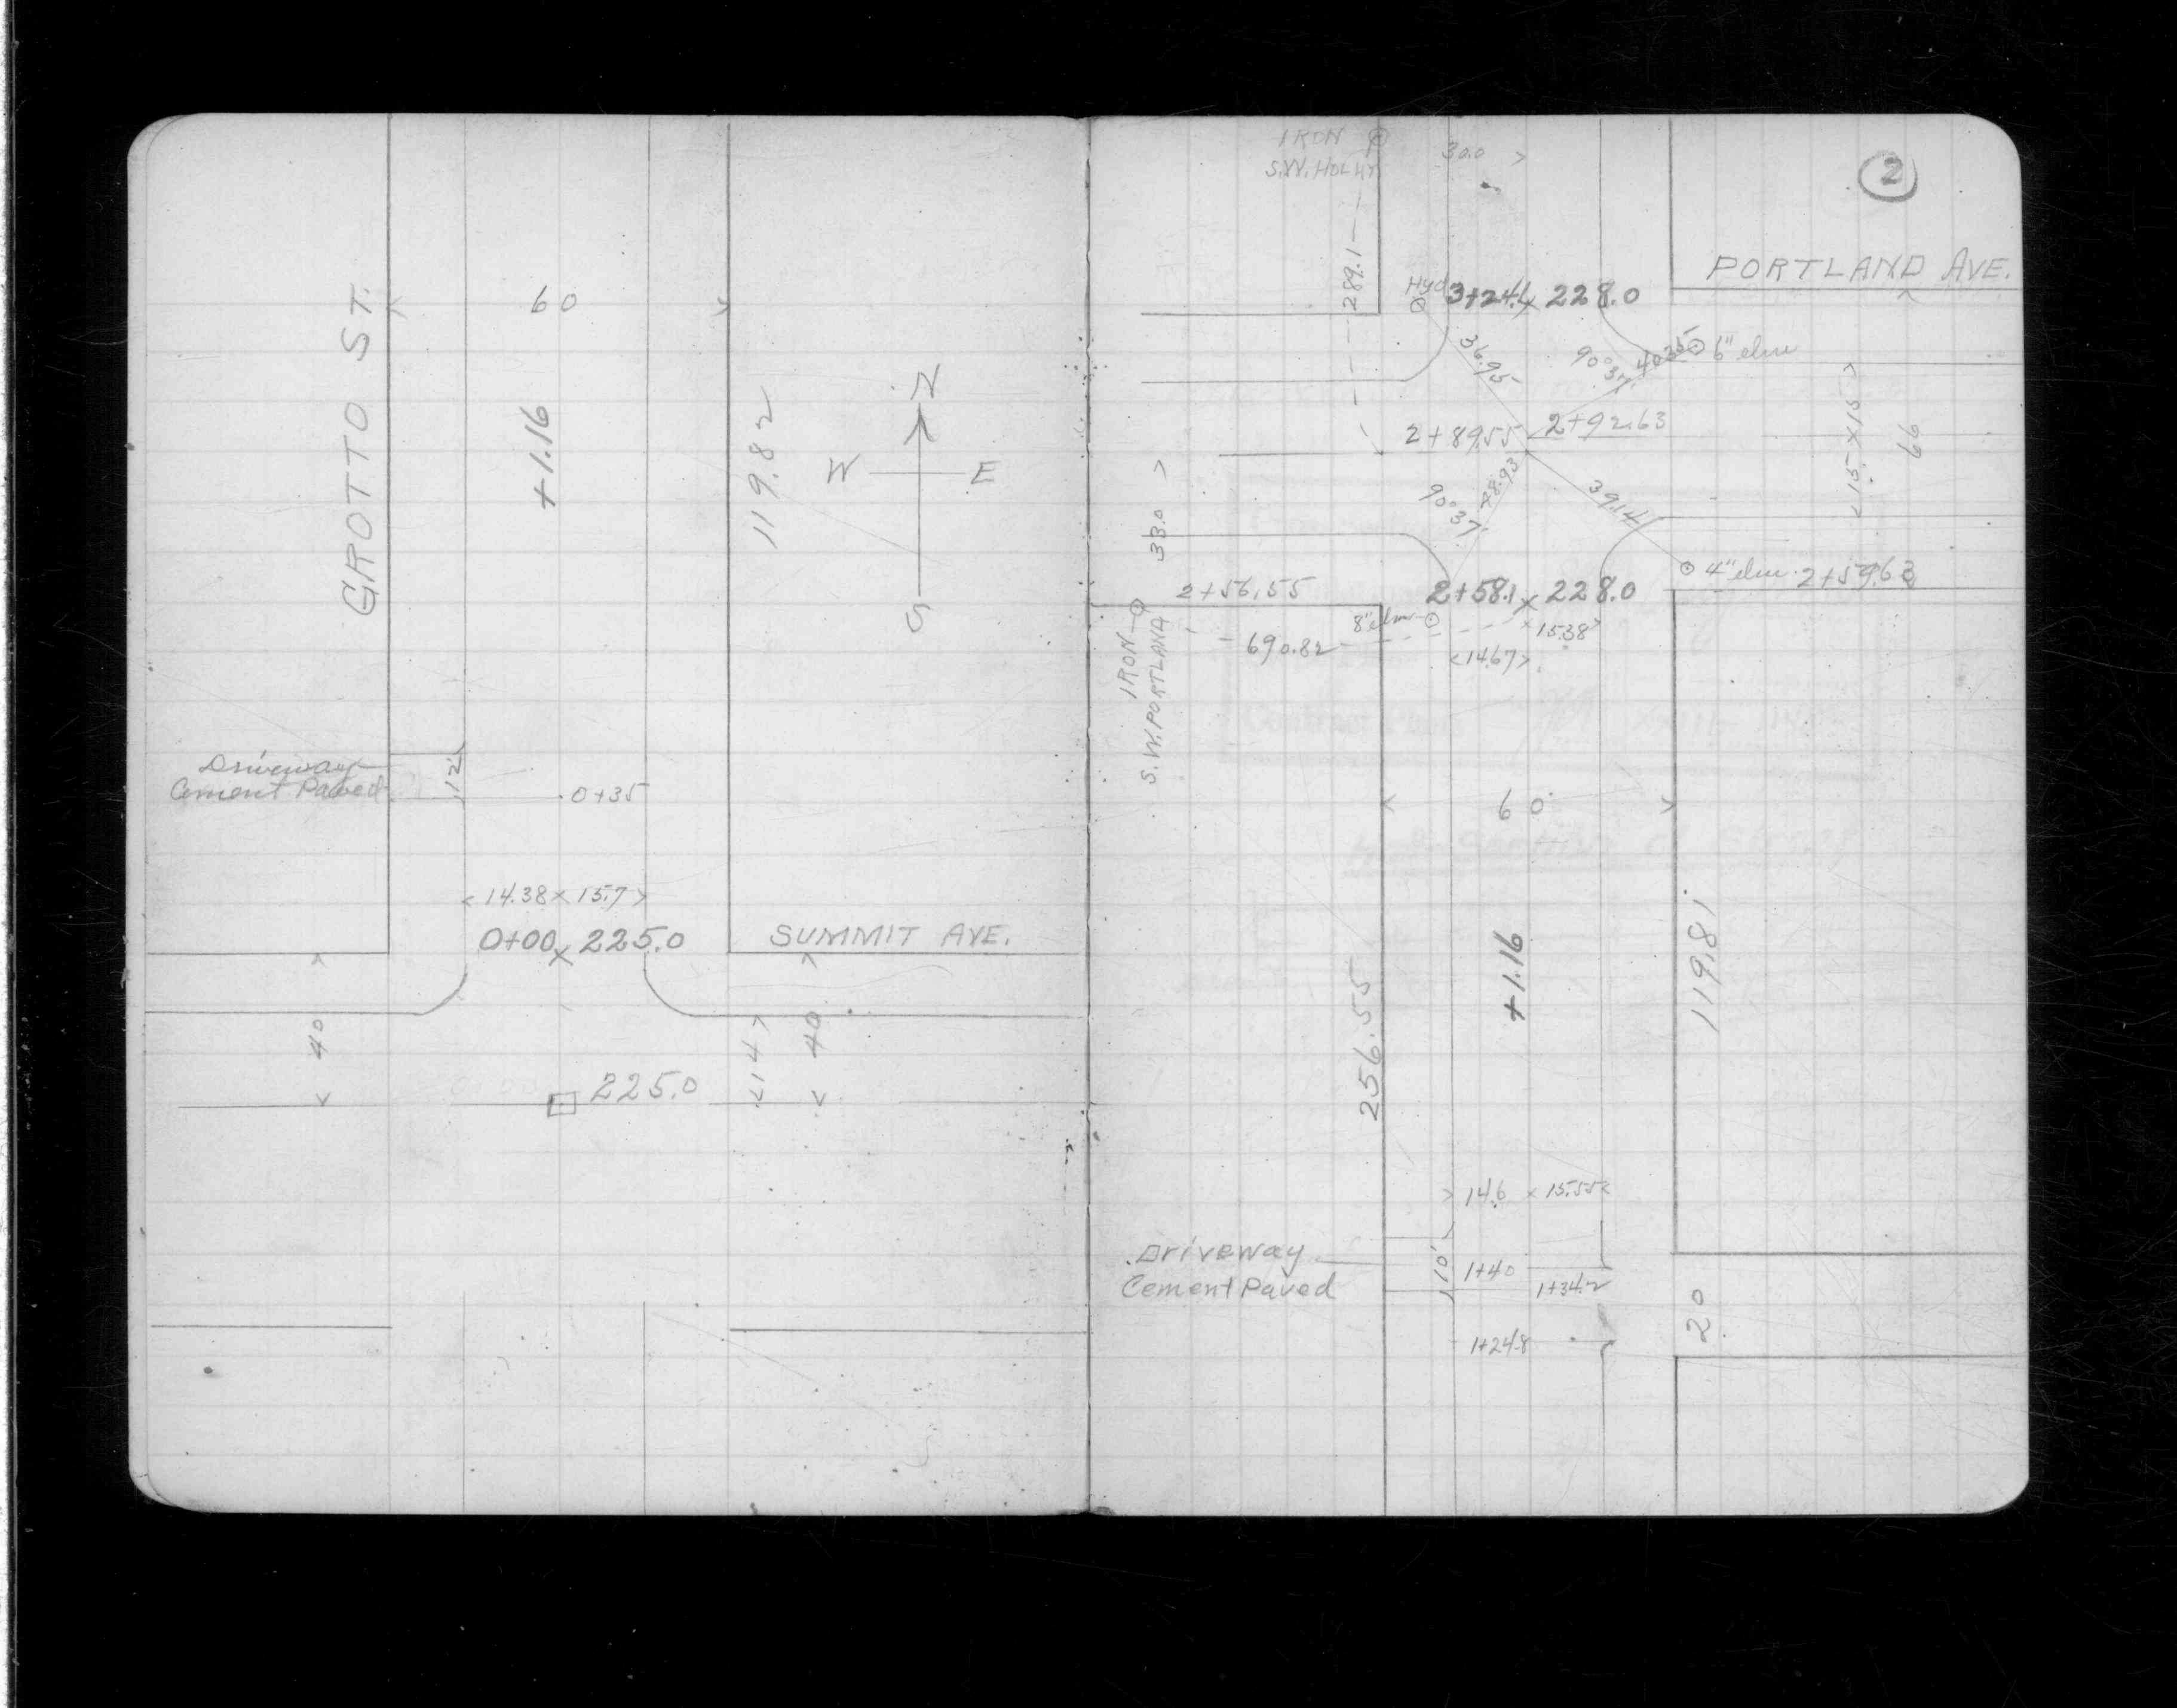 GROTTO ST.
60
+1.16
119.82
N
W E
S
Driveway
Cement Paved
12'
0+35
14.38 x 15.7
0+00 x 225.0
SUMMIT AVE.
40
14
40
225.0
2
IRON
S.W. HOLLY
30.0
PORTLAND AVE.
289.1
Hyd
3+24.4 x 228.0
36.95
90°37'
40.35
6" elm
2+89.55
2+92.63
15 x 15
66
33.0
90°37'
39.14
4" elm 2+59.63
2+56.55
2+58.1 x 228.0
8" elm
15.38
690.82
14.67
IRON
S.W. PORTLAND
60
+1.16
119.81
256.55
14.6 x 15.55
Driveway
Cement Paved
10'
1+40
1+34.2
20
1+24.8